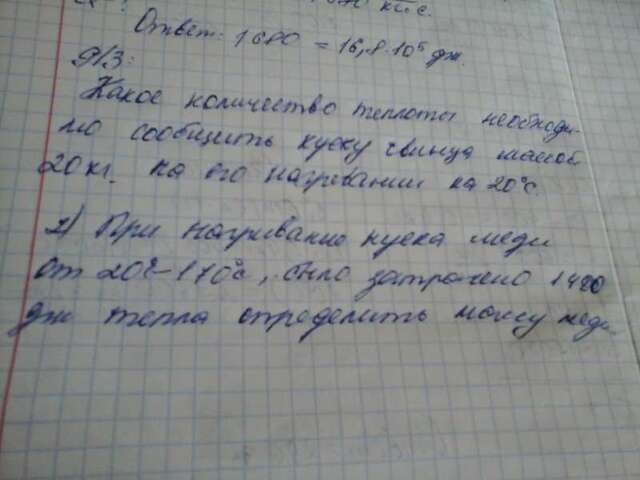 Ответ: 1680 = 16,8·10⁵ дж.
Д/З:
Какое количество теплоты необходи
мо сообщить куску свинца массой
20 кг. на его нагревании на 20°с.
2) При нагривание куска меди
От 20°-170°с, было затрачено 1420
дж тепла определить массу меди